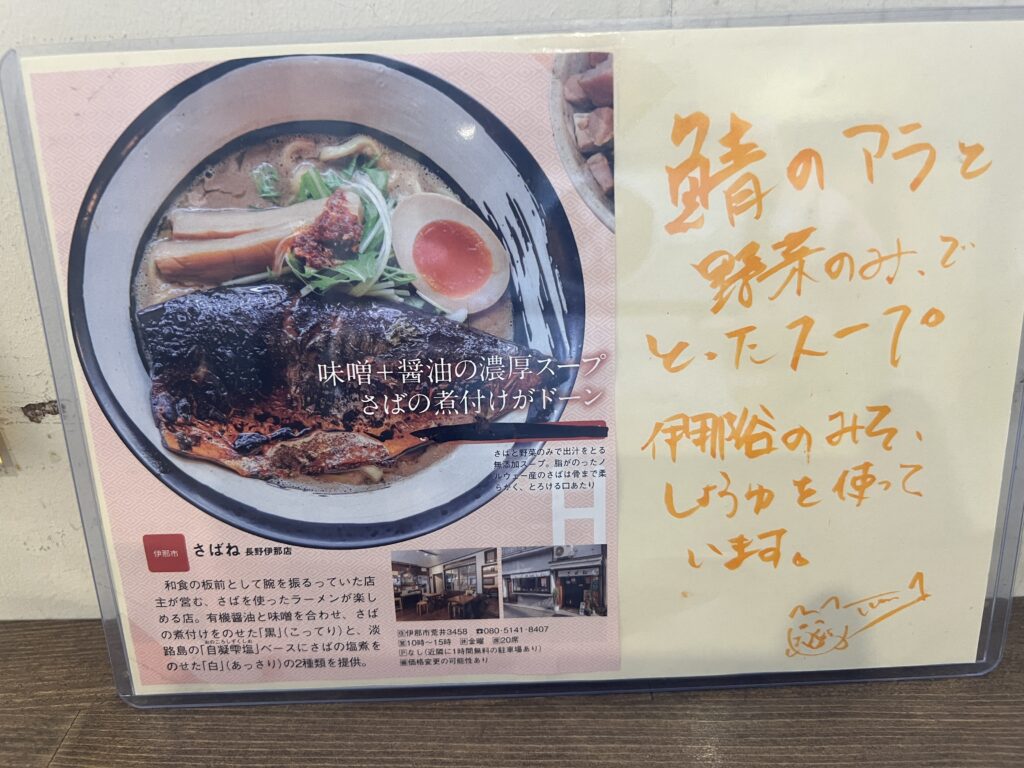 味噌+醤油の濃厚スープ
さばの煮付けがドーン
さばと野菜のみで出汁をとる
無添加スープ。脂がのったノ
ルウェー産のさばは骨まで柔
らかく、とろける口あたり
H
伊那市
さばね 長野伊那店
和食の板前として腕を振るっていた店
主が営む、さばを使ったラーメンが楽し
める店。有機醤油と味噌を合わせ、さば
の煮付けをのせた「黒」(こってり)と、淡
おのころしずくしお
路島の「自凝雫塩」ベースにさばの塩煮を
のせた「白」(あっさり)の2種類を提供。
住伊那市荒井3458 ☎080-5141-8407
営10時〜15時 休金曜 席20席
Pなし(近隣に1時間無料の駐車場あり)
※価格変更の可能性あり
鯖のアラと
野菜のみ、で
とったスープ
伊那谷のみそ、
しょうゆを使って
います。